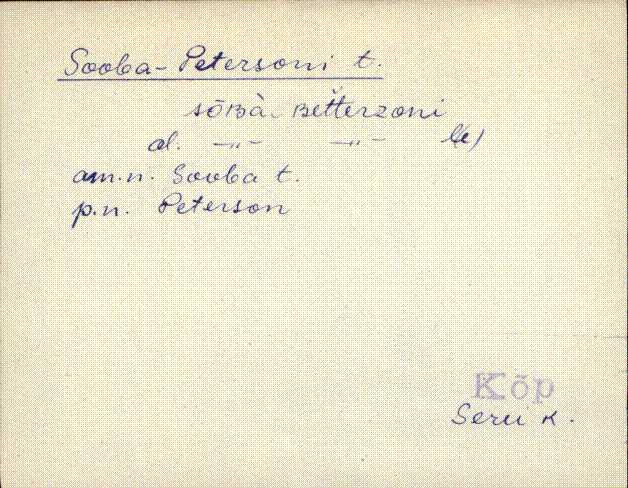 Sooba-Petersoni t.
sōʙà-ʙeť̆terzoni
al. —„— —„— le)
am.n. Sooba t.
p.n. Peterson
Kõp
Seru k.